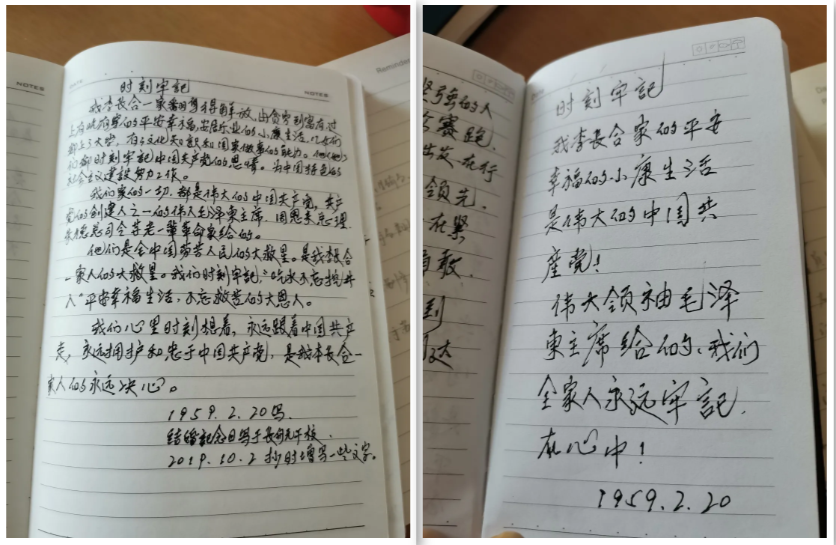 NOTES
NOTES
时刻牢記
我李長合一家翻身得解放,由貧窮到富有过
上有吃有穿的平安幸福,安居乐业的小康生活,
都上了大学,有文化知识和国家做事的能力。
们都时刻牢記中国共产党的恩情。为中国特色的
社会主义建設努力工作。
我们家的一切,都是伟大的中国共产党,共产
党的创建人之一的伟人毛泽東主席,周恩来总理
朱德总司令等老一輩革命家給的。
他们是全中国劳苦人民的大救星。是我李長合
一家人的大救星。我们时刻牢記,“吃水不忘挖井
人”平安幸福生活,不忘救苦的大恩人。
我们心里时刻想着,永远跟着中国共产
党,永远拥护和忠于中国共产党,是我李長合一
家人的永远决心。
1959.2.20写
結婚紀念日写于長
2019.10.2 抄时增写一些文字。
Reminder
坚强的人
赛跑.
出发.在行
领先.
在緊
勇敢.
到
达
时刻牢記
我李長合家的平安
幸福的小康生活
是伟大的中国共
産党!
伟大领袖毛泽
東主席给的,我们
全家人永远牢記.
在心中!
1959.2.20